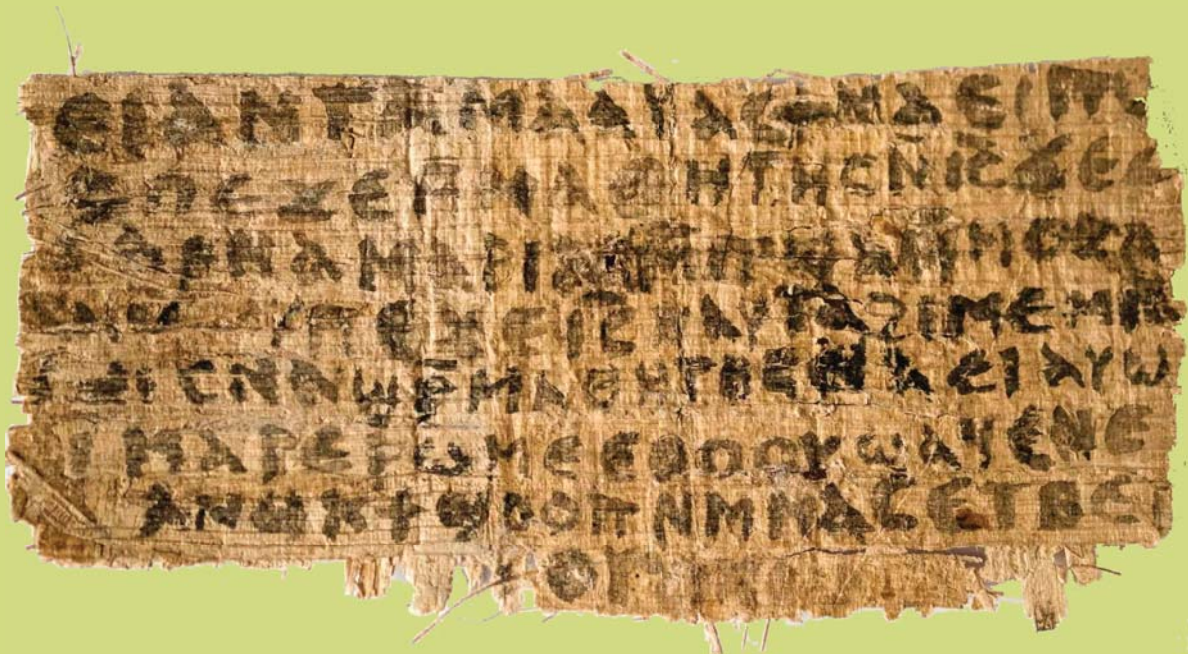 ⲉⲓ ⲁⲛ ⲧⲁⲙⲁⲁⲩ ⲁⲥϯ ⲛⲁⲉⲓ ⲡ
ⲡⲉϫⲉ ⲙⲙⲁⲑⲏⲧⲏⲥ ⲛⲓ̅ⲥ̅ ϫⲉ ⲥ
ⲁⲣⲛⲁ ⲙⲁⲣⲓⲁⲙ ⲙ̅ⲡϣⲁ ⲙ̅ⲙⲟⲥ ⲁ
ⲡⲉϫⲉ ⲓ̅ⲥ̅ ⲛⲁⲩ ⲧⲁϩⲓⲙⲉ ⲙⲛ̅
ⲥⲛⲁϣⲣ̅ⲙⲁⲑⲏⲧⲏⲥ ⲛⲁⲉⲓ ⲁⲩⲱ
ⲓ ⲙⲁⲣⲉⲣⲱⲙⲉ ⲉⲑⲟⲟⲩ ϣⲁϥⲉ ⲛⲉ
ⲁⲛⲟⲕ ϯϣⲟⲟⲡ ⲛⲙ̅ⲙⲁⲥ ⲉⲧⲃⲉ